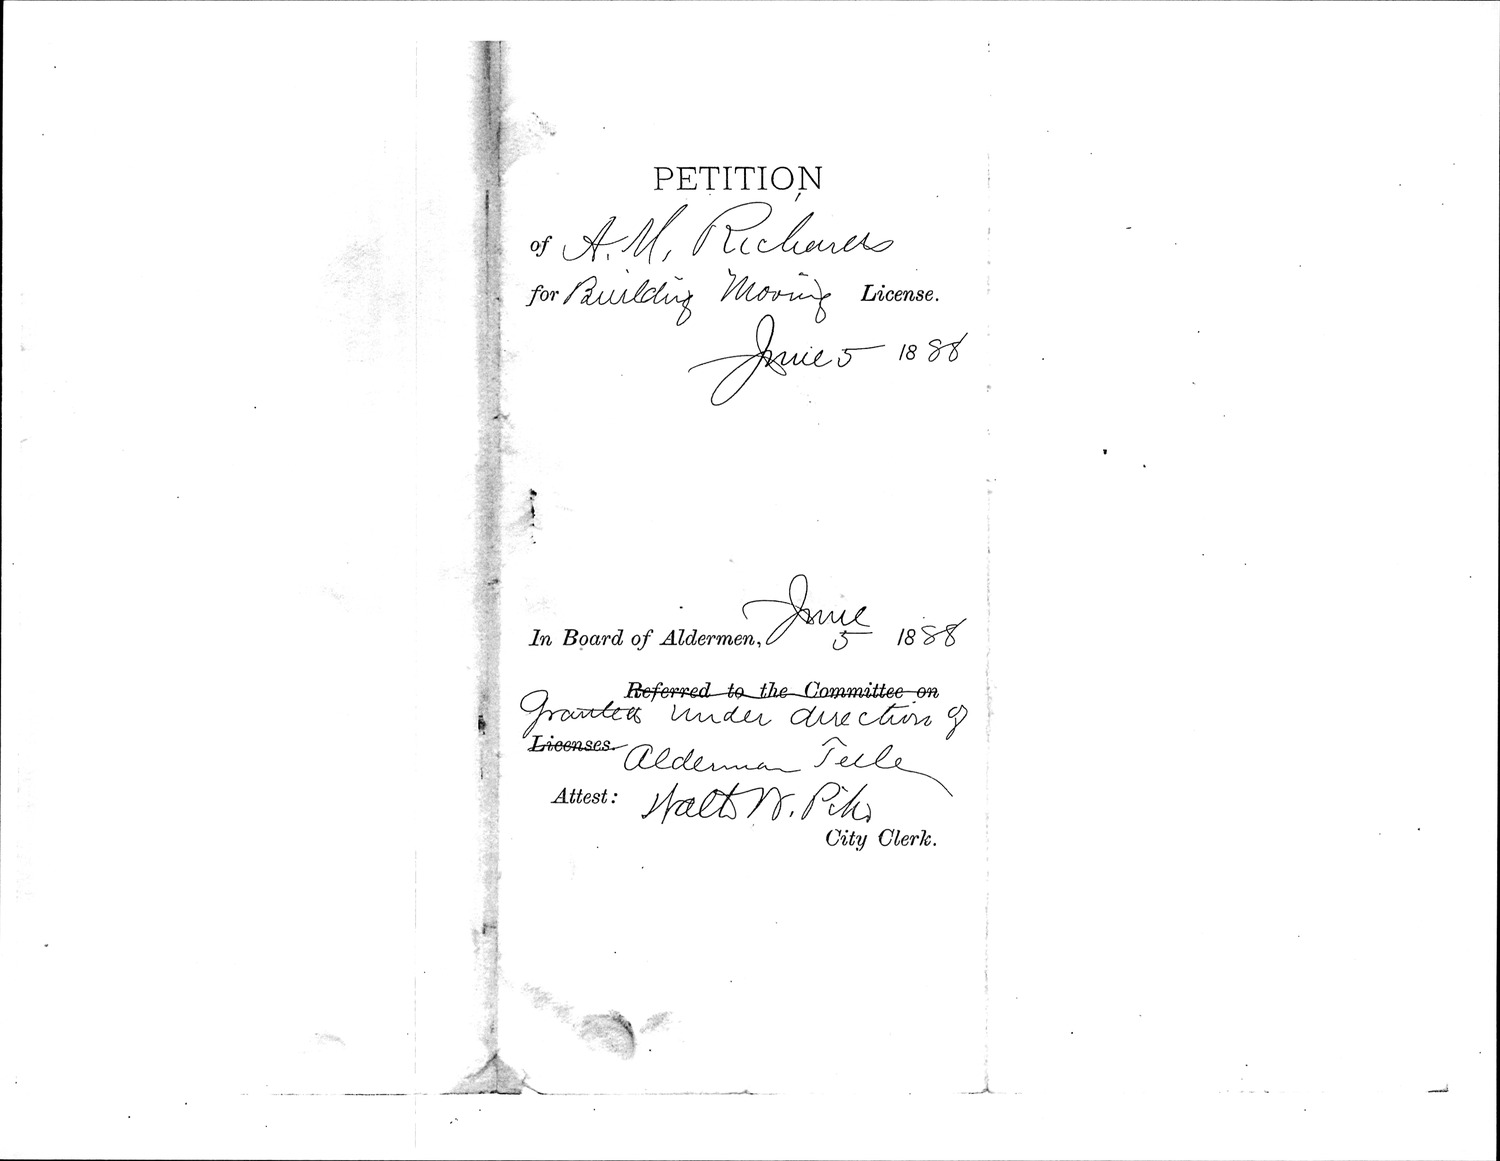 PETITION
of A. M. Richards
for Building Moving License.
June 5 1888
In Board of Aldermen, June 5 1888
Referred to the Committee on
Granted under direction of
Licenses.
Alderman
Attest: Walt W. Pike
City Clerk.